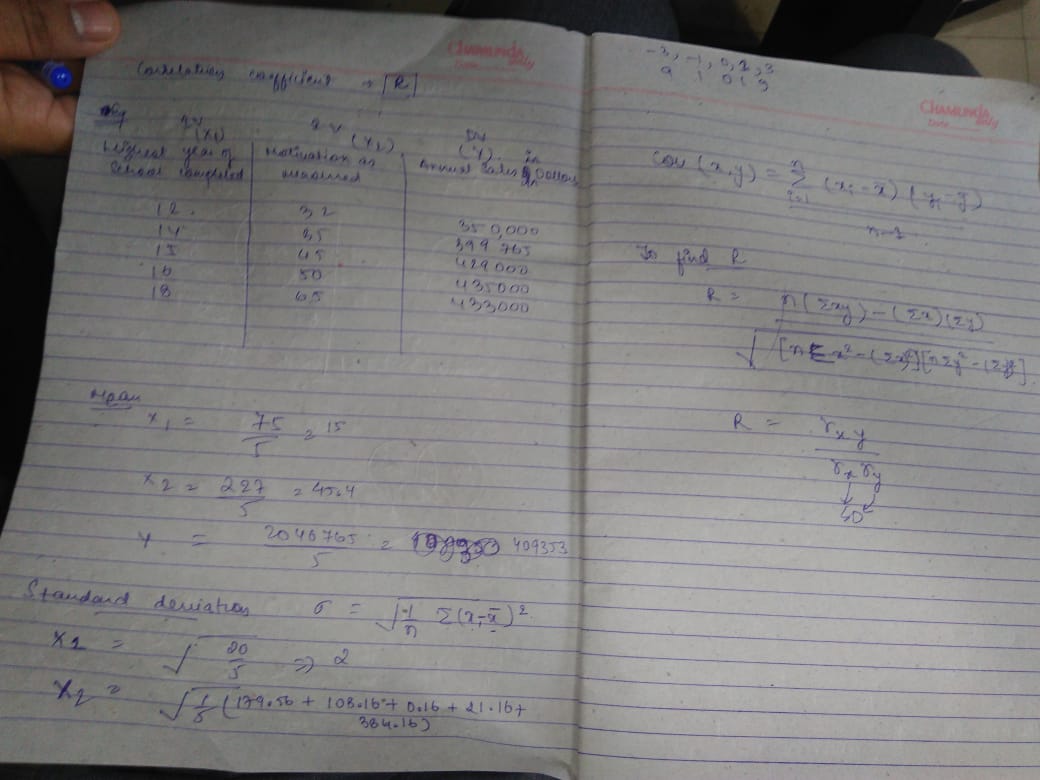 CHAMUNDA
Date only
Correlation coefficient → R
Eg
(X1) (X2) (Y)
Highest year of School completed
Motivation as measured
Annual Sales in Dollars
12 32 350,000
14 35 399765
15 45 429000
16 50 435000
18 65 433000
Mean
x1 = 75/5 = 15
x2 = 227/5 = 45.4
Y = 2046765/5 = 409353
Standard deviation σ = √1/n Σ(x-x̄)²
X1 = √20/5 ⇒ 2
X2 = √1/5 (179.56 + 108.16 + 0.16 + 21.16 +
384.16)
-3, -1, 0, 1, 3
9 1 0 1 9
CHAMUNDA
Date only
cov (x,y) = n Σ i=1 (xi - x̄) (yi - ȳ)
n-1
To find R
R = n(Σxy) - (Σx)(Σy)
√[nΣx² - (Σx)²][nΣy² - (Σy)²]
R = rxy
rx ry
SD